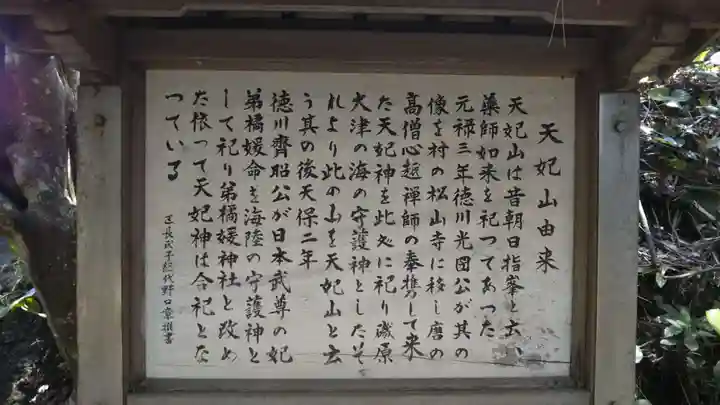 天妃山由来
天妃山は昔朝日指峯と云い
薬師如来を祀つてあつた
元禄三年徳川光圀公が其の
像を村の松山寺に移し唐の
高僧心越禅師の奉携して来
た天妃神を此処に祀り磯原
大津の海の守護神としたそ
れより此の山を天妃山と云
う其の後天保二年
徳川齊昭公が日本武尊の妃
弟橘媛命を海陸の守護神と
して祀り弟橘媛神社と改め
た依って天妃神は合祀とな
つている
氏子総代野口
書